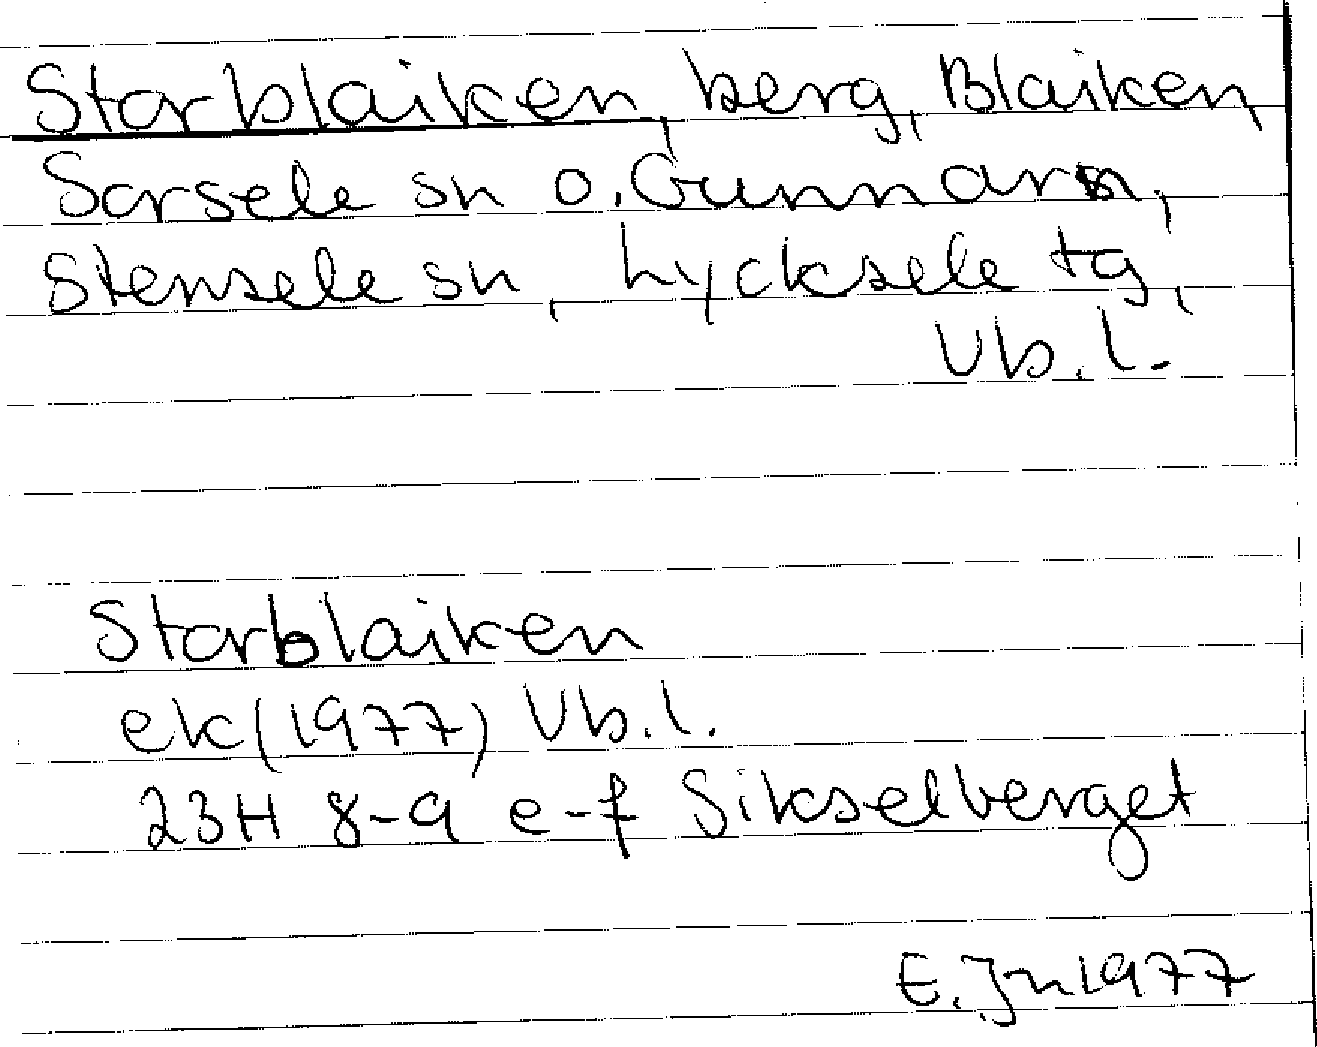 Storblaiken, berg, Blaiken
Sorsele sn o. Gunnarn,
Stensele sn, Lycksele tg,
Vb.l.
Storblaiken
ek(1977) Vb.l.
23H 8-9 e-f Sikselberget
E.Jn 1977